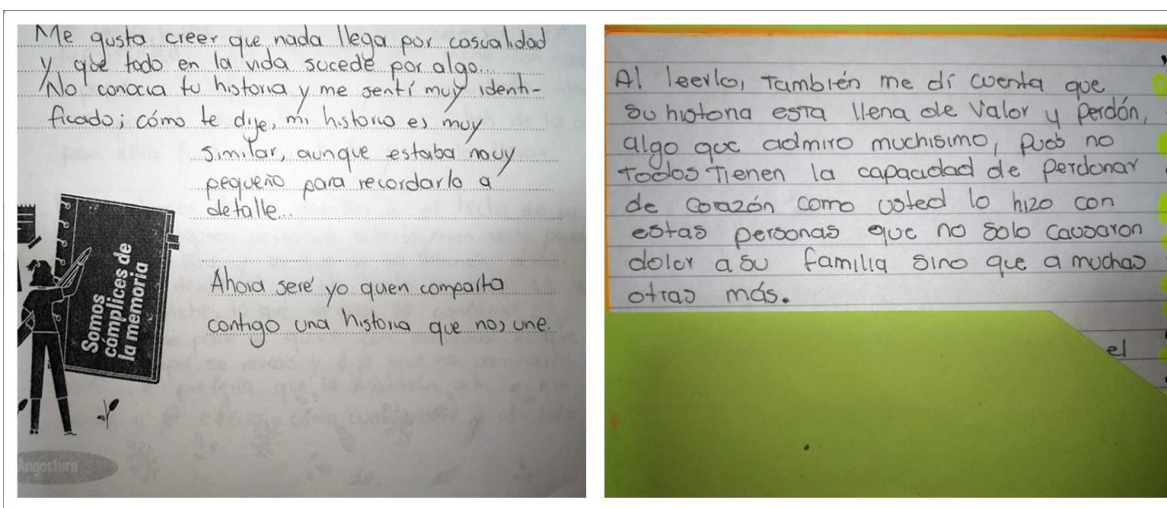 Me gusta creer que nada llega por casualidad
y que todo en la vida sucede por algo...
No conocia tu historia y me sentí muy identi-
ficado; cómo te dije, mi historia es muy
similar, aunque estaba muy
pequeño para recordarlo a
detalle...
Ahora seré yo quien comparta
contigo una historia que nos une.
Somos
cómplices de
la memoria
Angostura
Al leerlo, también me dí cuenta que
su historia esta llena de valor y perdón,
algo que admiro muchisimo, pues no
todos tienen la capacidad de perdonar
de corazón como usted lo hizo con
estas personas que no solo causaron
dolor a su familia sino que a muchas
otras más.
el